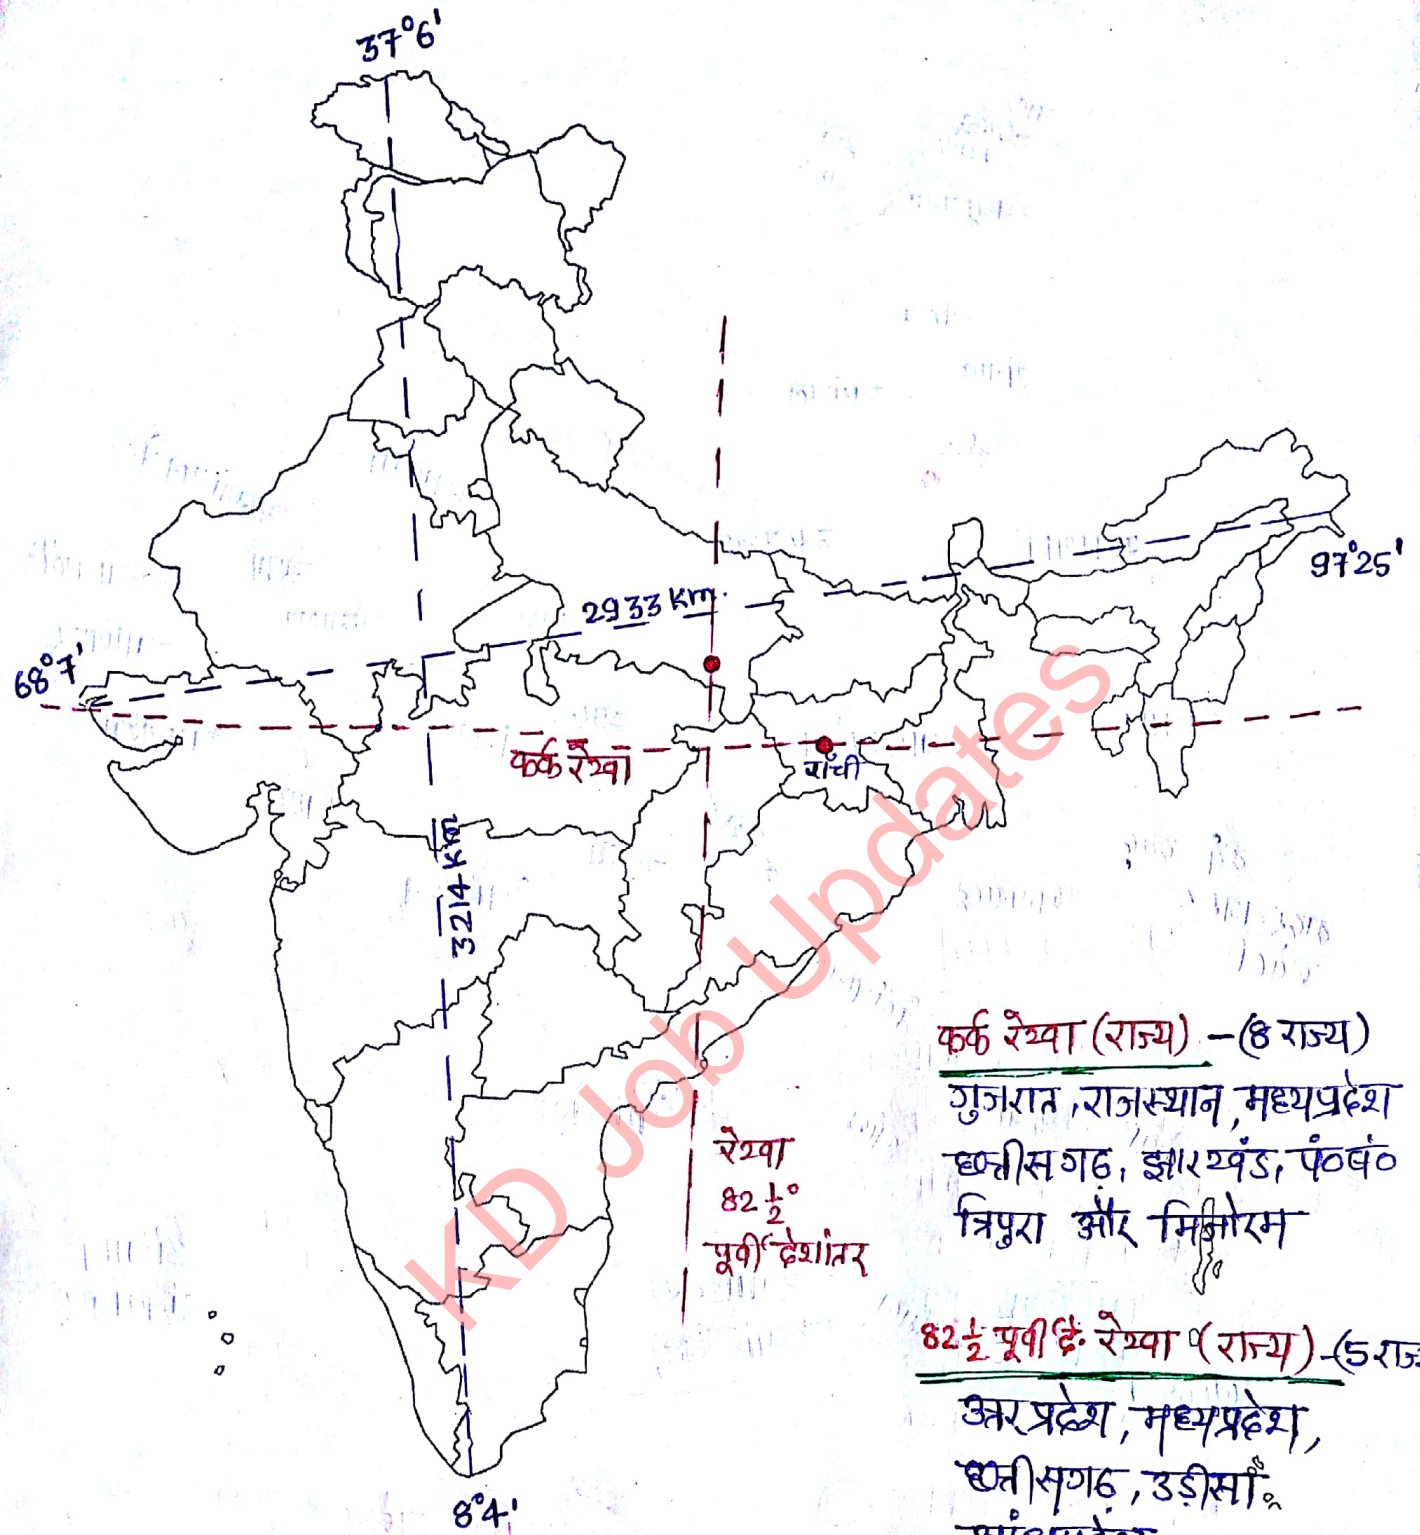 37°6'
97°25'
2933 Km.
68°7'
कर्क रेखा
राँची
3214 Km
रेखा
82 1/2°
पूर्वी देशांतर
8°4'
कर्क रेखा (राज्य) - (8 राज्य)
गुजरात, राजस्थान, मध्यप्रदेश
छत्तीसगढ़, झारखंड, पं०बं०
त्रिपुरा और मिजोरम
82 1/2 पूर्वी दे. रेखा (राज्य) - (5 राज्
उत्तर प्रदेश, मध्यप्रदेश,
छत्तीसगढ़, उड़ीसा
KD Job Updates